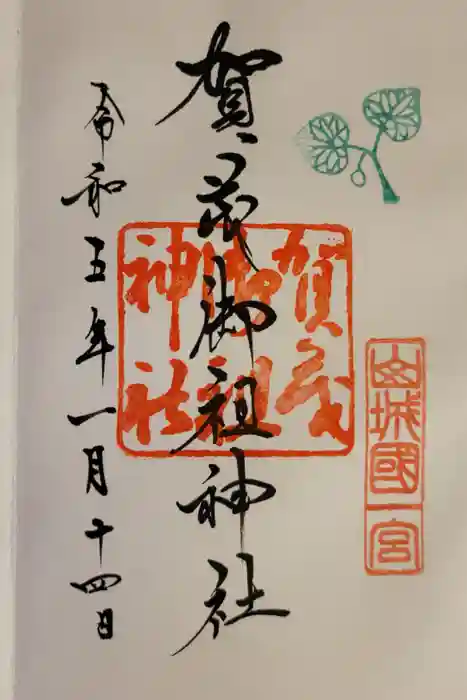 山城國一宮
賀茂御祖神社
賀茂
御祖
神社
令和五年一月十四日